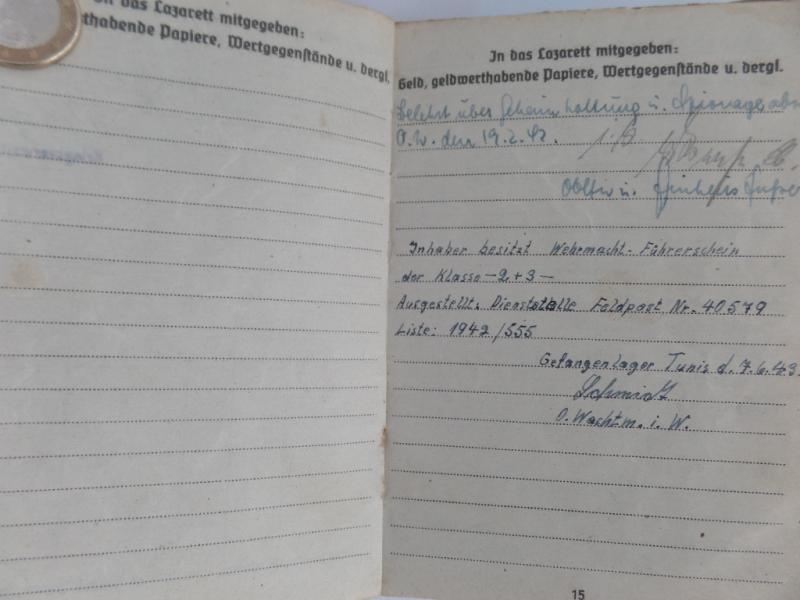 In das Lazarett mitgegeben:
thabende Papiere, Wertgegenstände u. dergl.
In das Lazarett mitgegeben:
Geld, geldwerthabende Papiere, Wertgegenstände u. dergl.
Belehrt über Geheimhaltung u. Spionageabw
O.W. den 19.2.42.
Obltn u.
Inhaber besitzt Wehrmacht-Führerschein
der Klasse -2+3-
Ausgestellt: Dienststelle Feldpost Nr. 40579
Liste: 1942/555
Gefangenlager Tunis d. 7.6.43.
Schmidt
O.Wachtm. i. W.
15